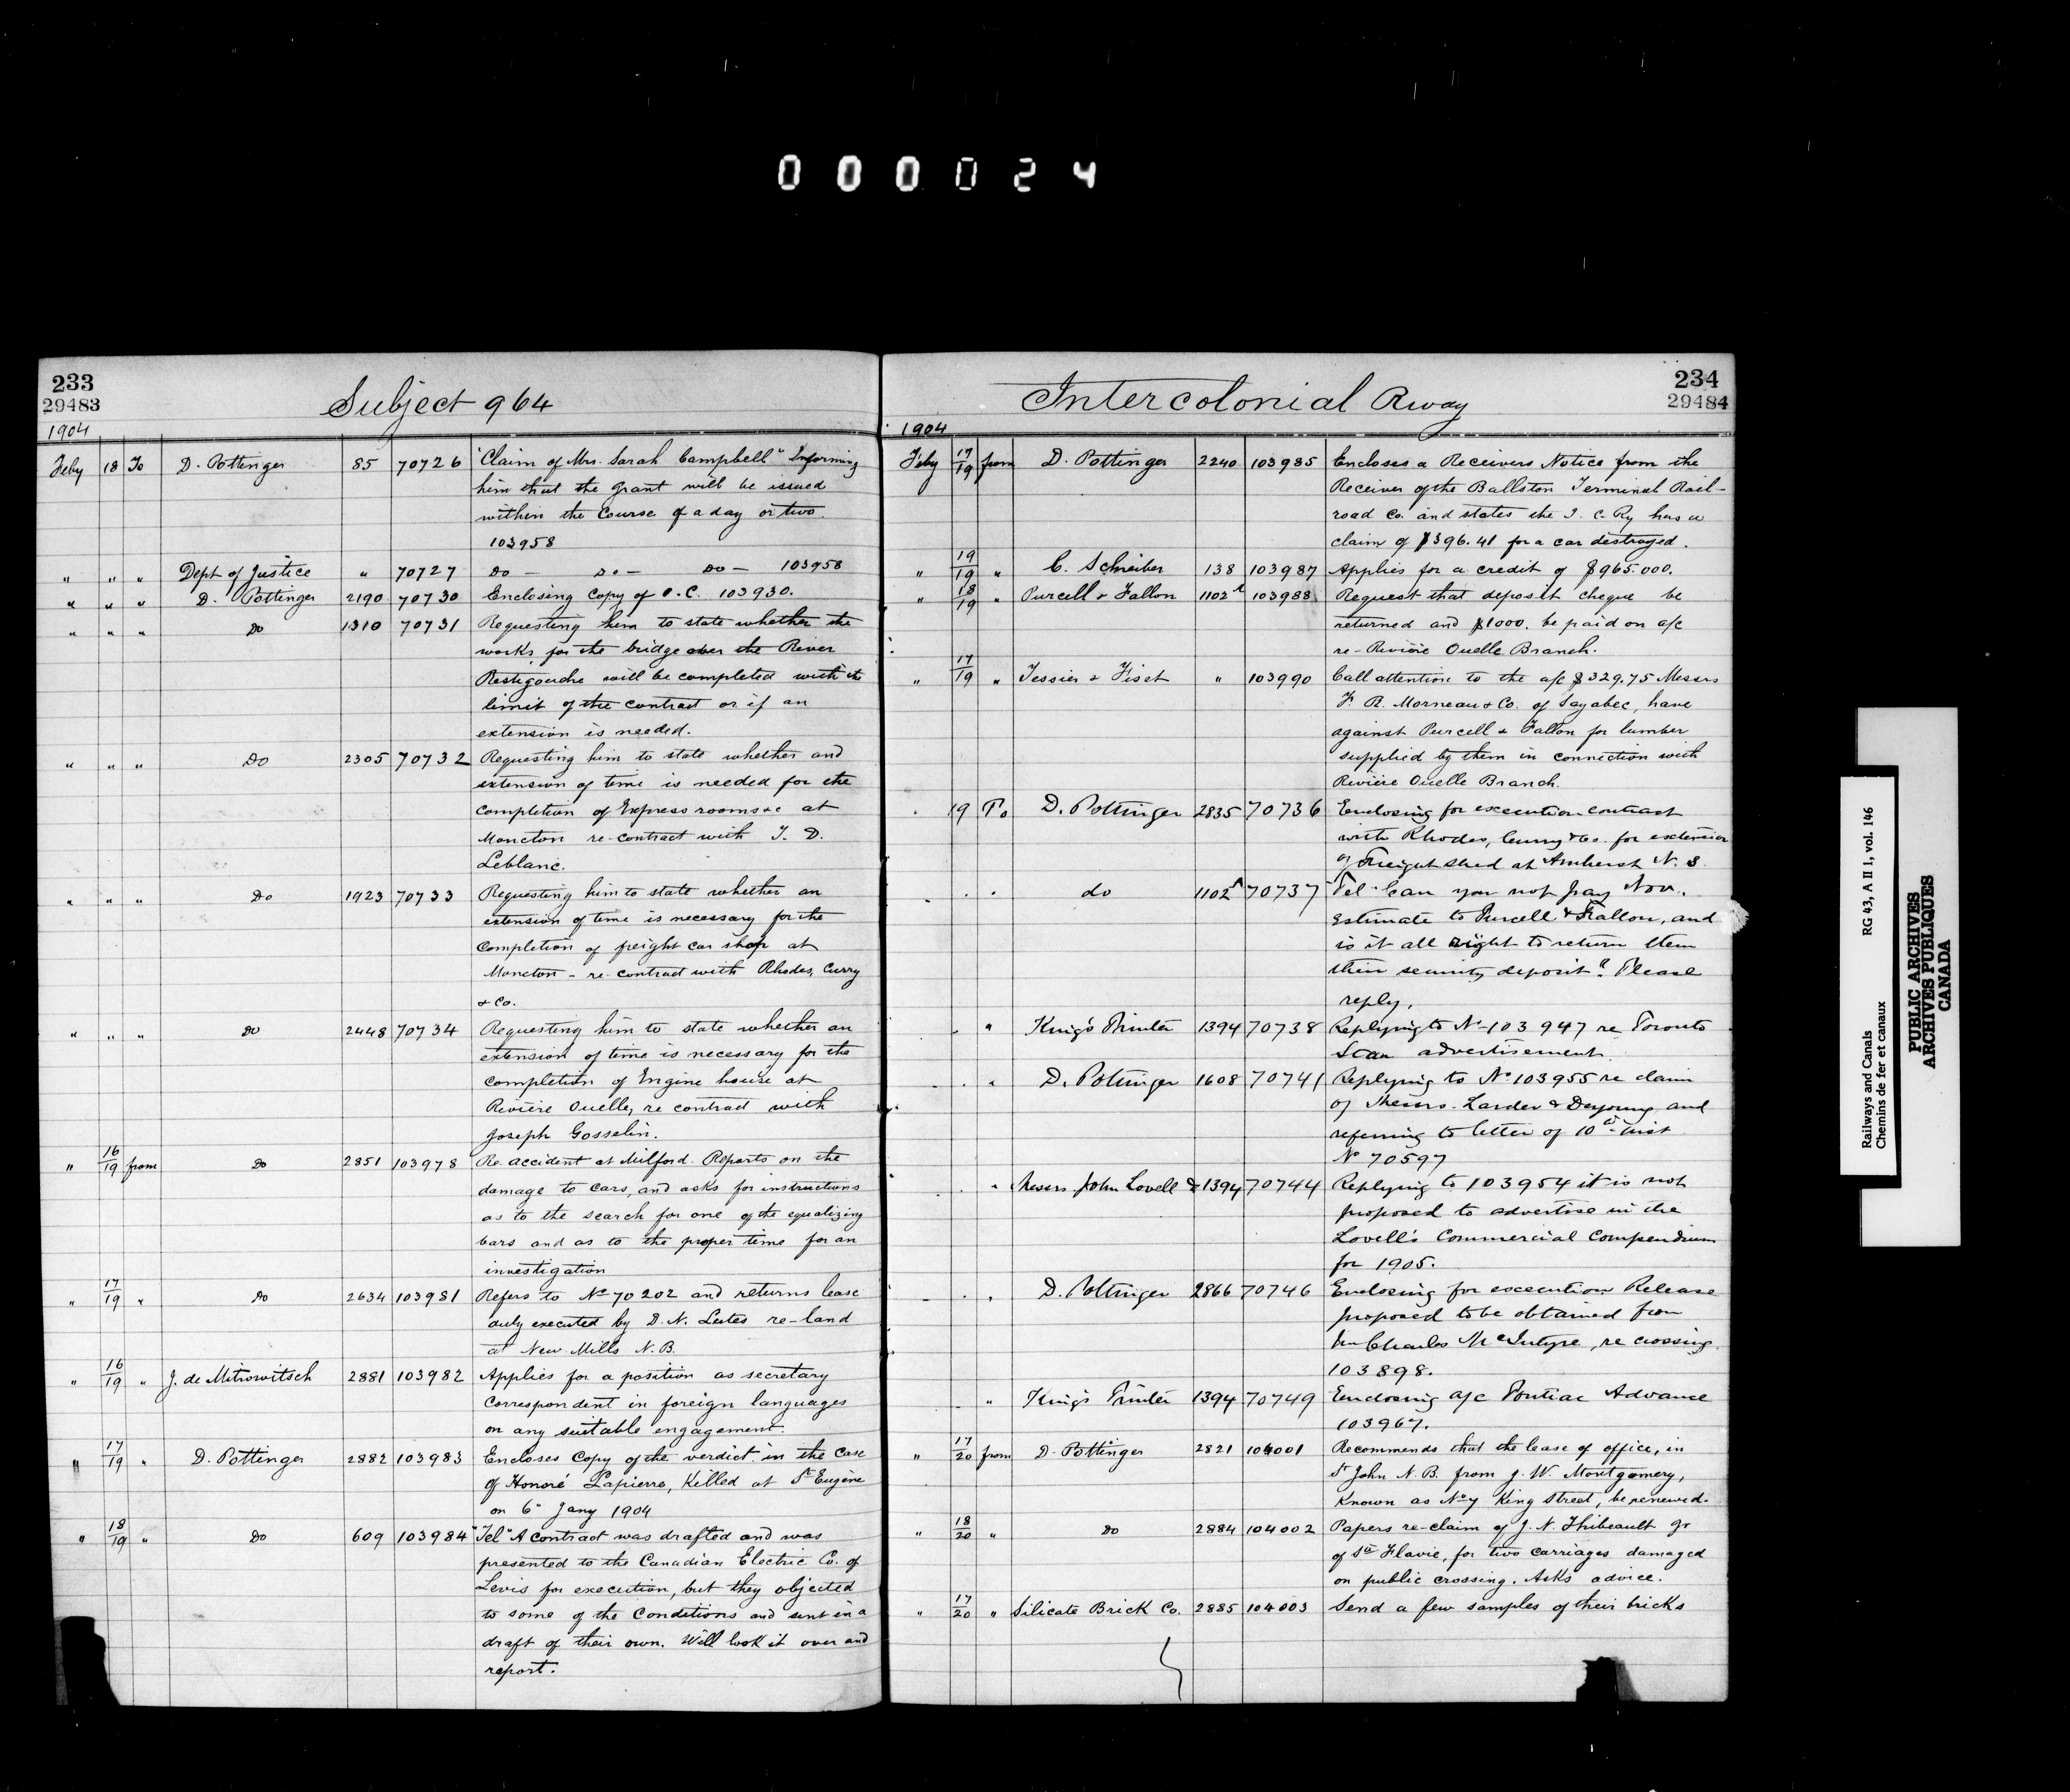 000024
233
29483
Subject 964
1904
Feby 18 To D. Pottinger 85 70726 "Claim of Mrs. Sarah Campbell" Informing
him that the grant will be issued
within the Course of a day or two
103958
" " " Dept of Justice " 70727 Do - Do - Do - 103958
" " " D. Pottinger 2190 70730 Enclosing Copy of O.C. 103930.
" " " Do 1310 70731 Requesting him to state whether the
works for the bridge over the River
Restigouche will be completed with the
limit of the contract or if an
extension is needed.
" " " Do 2305 70732 Requesting him to state whether and
extension of time is needed for the
Completion of Express rooms &c at
Moncton re-contract with T. D.
Leblanc.
" " " Do 1923 70733 Requesting him to state whether an
extension of time is necessary for the
Completion of freight car shop at
Moncton - re-contract with Rhodes, Curry
& Co.
" " " Do 2448 70734 Requesting him to state whether an
extension of time is necessary for the
Completion of Engine house at
Rivière Ouelle, re contract with
Joseph Gosselin.
" 16/19 from Do 2851 103978 Re. accident at Milford. Reports on the
damage to cars, and asks for instructions
as to the search for one of the equalizing
bars and as to the proper time for an
investigation
" 17/19 " Do 2634 103981 Refers to No 70202 and returns lease
duly executed by D. N. Lutes re-land
at New Mills N.B.
" 16/19 " J. de Mitrowitsch 2881 103982 Applies for a position as secretary
Correspondent in foreign languages
on any suitable engagement.
" 17/19 " D. Pottinger 2882 103983 Encloses Copy of the verdict in the Case
of Honoré Lapierre, Killed at St Eugène
on 6" Jany 1904
" 18/19 " Do 609 103984 "Tel" A contract was drafted and was
presented to the Canadian Electric Co. of
Levis for execution, but they objected
to some of the Conditions and sent in a
draft of their own. Will look it over and
report.
234
29484
Intercolonial Rway
1904
Feby 17/19 from D. Pottinger 2240 103985 Encloses a Receivers Notice from the
Receiver of the Ballston Terminal Rail-
road Co. and states the I. C. Ry has a
claim of $396.41 for a car destroyed.
" 19/19 " C. Schreiber 138 103987 Applies for a credit of $965.000.
" 18/19 " Purcell & Fallon 1102A 103988 Request that deposit cheque be
returned and $1000. be paid on a/c
re-Rivière Ouelle Branch.
" 17/19 " Tessier & Fiset " 103990 Call attention to the a/c $329.75 Messrs
F. R. Morneau & Co. of Sayabec, have
against Purcell & Fallon for lumber
supplied by them in connection with
Rivière Ouelle Branch.
19 To D. Pottinger 2835 70736 Enclosing for execution contract
with Rhodes, Curry & Co. for extension
of Freight shed at Amherst N. S.
" " do 1102A 70737 "Tel" Can you not pay Nov.
Estimate to Purcell & Fallon, and
is it all right to return them
their security deposit". Please
reply.
" " King's Printer 1394 70738 Replying to No 103947 re Toronto
Star advertisement.
" " D. Pottinger 1608 70741 Replying to No 103955 re claim
of Messrs. Larder & Deyoung and
referring to letter of 10th inst
No 70597
" " Messrs. John Lovell & 1394 70744 Replying to 103954 it is not
proposed to advertise in the
Lovell's Commercial Compendium
for 1905.
" " D. Pottinger 2866 70746 Enclosing for execution Release
proposed to be obtained from
Mr Charles McIntyre, re crossing.
103898.
" King's Printer 1394 70749 Enclosing a/c Pontiac Advance
103967.
" 17/20 from D. Pottinger 2821 104001 Recommends that the lease of office, in
St John N.B. from J. W. Montgomery,
Known as No 7 King Street, be renewed.
" 18/20 " Do 2884 104002 Papers re-claim of J. N. Thibeault Jr
of Ste Flavie, for two carriages damaged
on public crossing. Asks advice.
" 17/20 " Silicate Brick Co. 2885 104003 Send a few samples of their bricks
Railways and Canals RG 43, A II 1, vol. 146
Chemins de fer et canaux
PUBLIC ARCHIVES
ARCHIVES PUBLIQUES
CANADA